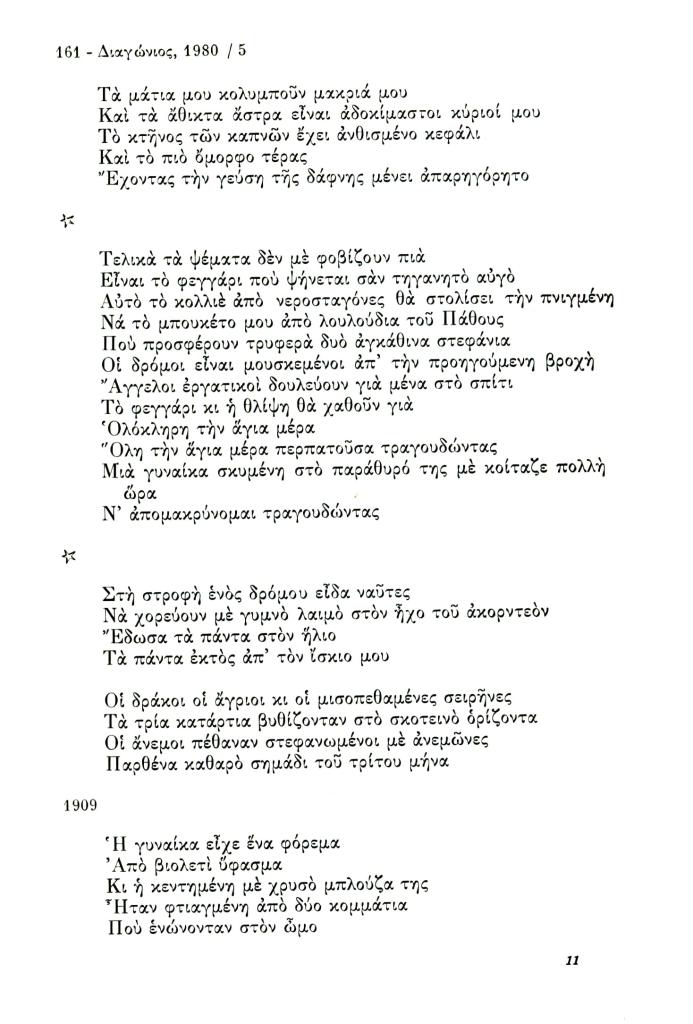 161 - Διαγώνιος, 1980 / 5
Τὰ μάτια μου κολυμποῦν μακριά μου
Καὶ τὰ ἄθικτα ἄστρα εἶναι ἀδοκίμαστοι κύριοί μου
Τὸ κτῆνος τῶν καπνῶν ἔχει ἀνθισμένο κεφάλι
Καὶ τὸ πιὸ ὄμορφο τέρας
Ἔχοντας τὴν γεύση τῆς δάφνης μένει ἀπαρηγόρητο
☆
Τελικὰ τὰ ψέματα δὲν μὲ φοβίζουν πιὰ
Εἶναι τὸ φεγγάρι ποὺ ψήνεται σὰν τηγανητὸ αὐγὸ
Αὐτὸ τὸ κολλιὲ ἀπὸ νεροσταγόνες θὰ στολίσει τὴν πνιγμένη
Νά τὸ μπουκέτο μου ἀπὸ λουλούδια τοῦ Πάθους
Ποὺ προσφέρουν τρυφερὰ δυὸ ἀγκάθινα στεφάνια
Οἱ δρόμοι εἶναι μουσκεμένοι ἀπ’ τὴν προηγούμενη βροχὴ
Ἄγγελοι ἐργατικοὶ δουλεύουν γιὰ μένα στὸ σπίτι
Τὸ φεγγάρι κι ἡ θλίψη θὰ χαθοῦν γιὰ
Ὁλόκληρη τὴν ἅγια μέρα
Ὅλη τὴν ἅγια μέρα περπατοῦσα τραγουδώντας
Μιὰ γυναίκα σκυμένη στὸ παράθυρό της μὲ κοίταζε πολλὴ
ὥρα
Ν’ ἀπομακρύνομαι τραγουδώντας
☆
Στὴ στροφὴ ἑνὸς δρόμου εἶδα ναῦτες
Νὰ χορεύουν μὲ γυμνὸ λαιμὸ στὸν ἦχο τοῦ ἀκορντεὸν
Ἔδωσα τὰ πάντα στὸν ἥλιο
Τὰ πάντα ἐκτὸς ἀπ’ τὸν ἴσκιο μου
Οἱ δράκοι οἱ ἄγριοι κι οἱ μισοπεθαμένες σειρῆνες
Τὰ τρία κατάρτια βυθίζονταν στὸ σκοτεινὸ ὁρίζοντα
Οἱ ἄνεμοι πέθαναν στεφανωμένοι μὲ ἀνεμῶνες
Παρθένα καθαρὸ σημάδι τοῦ τρίτου μήνα
1909
Ἡ γυναίκα εἶχε ἕνα φόρεμα
Ἀπὸ βιολετὶ ὕφασμα
Κι ἡ κεντημένη μὲ χρυσὸ μπλούζα της
Ἦταν φτιαγμένη ἀπὸ δύο κομμάτια
Ποὺ ἑνώνονταν στὸν ὦμο
11